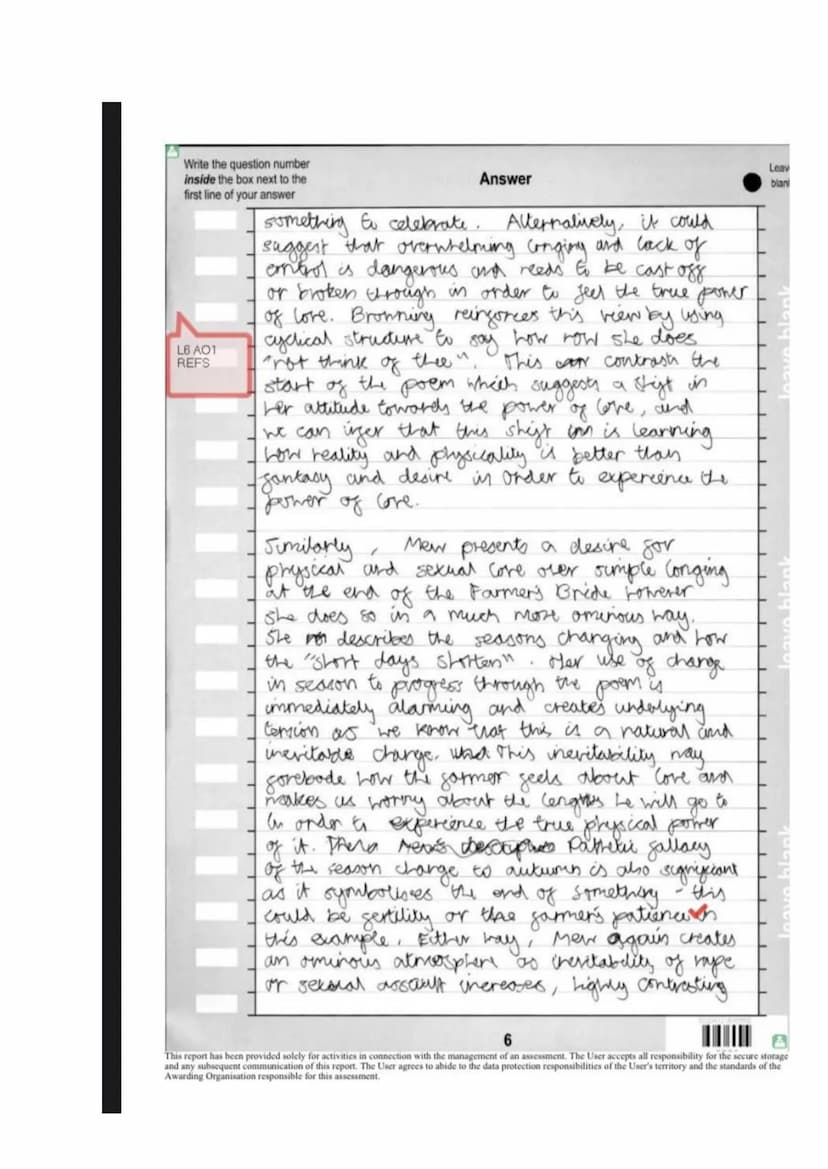 Write the question number
inside the box next to the
first line of your answer
Answer
Leav
blan
something to celebrate. Alternatively, it could
suggest that overwhelming longing and lack of
control is dangerous and needs to be cast off
or broken through in order to feel the true power
of love. Browning reinforces this view by using
cyclical structure to say how now she does
"not think of thee". This contrasts the
start of the poem which suggests a shift in
her attitude towards the power of love, and
we can infer that this shift is learning
how reality and physicality is better than
fantasy and desire in order to experience the
power of love.
L6 AO1
REFS
Similarly, Mew presents a desire for
physical and sexual love over simple longing
at the end of the Farmer's Bride however
she does so in a much more ominous way.
She describes the seasons changing and how
the "short days shorten". Her use of change
in season to progress through the poem is
immediately alarming and creates underlying
tension as we know that this is a natural and
inevitable change. This inevitability may
forebode how the farmer feels about love and
makes us worry about the lengths he will go to
in order to experience the true physical power
of it. Pathetic fallacy
of the season change to autumn is also significant
as it symbolises the end of something - this
could be fertility or the farmer's patience in
this example. Either way, Mew again creates
an ominous atmosphere as inevitability of rape
or sexual assault increases, highly contrasting
leave blank
leave blank
leave blank
6
This report has been provided solely for activities in connection with the management of an assessment. The User accepts all responsibility for the secure storage
and any subsequent communication of this report. The User agrees to abide to the data protection responsibilities of the User's territory and the standards of the
Awarding Organisation responsible for this assessment.